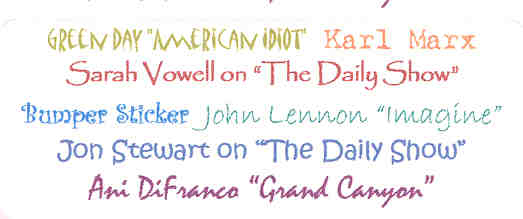 GREEN DAY "AMERICAN IDIOT" Karl Marx
Sarah Vowell on “The Daily Show”
Bumper Sticker John Lennon “Imagine”
Jon Stewart on “The Daily Show”
Ani DiFranco “Grand Canyon”